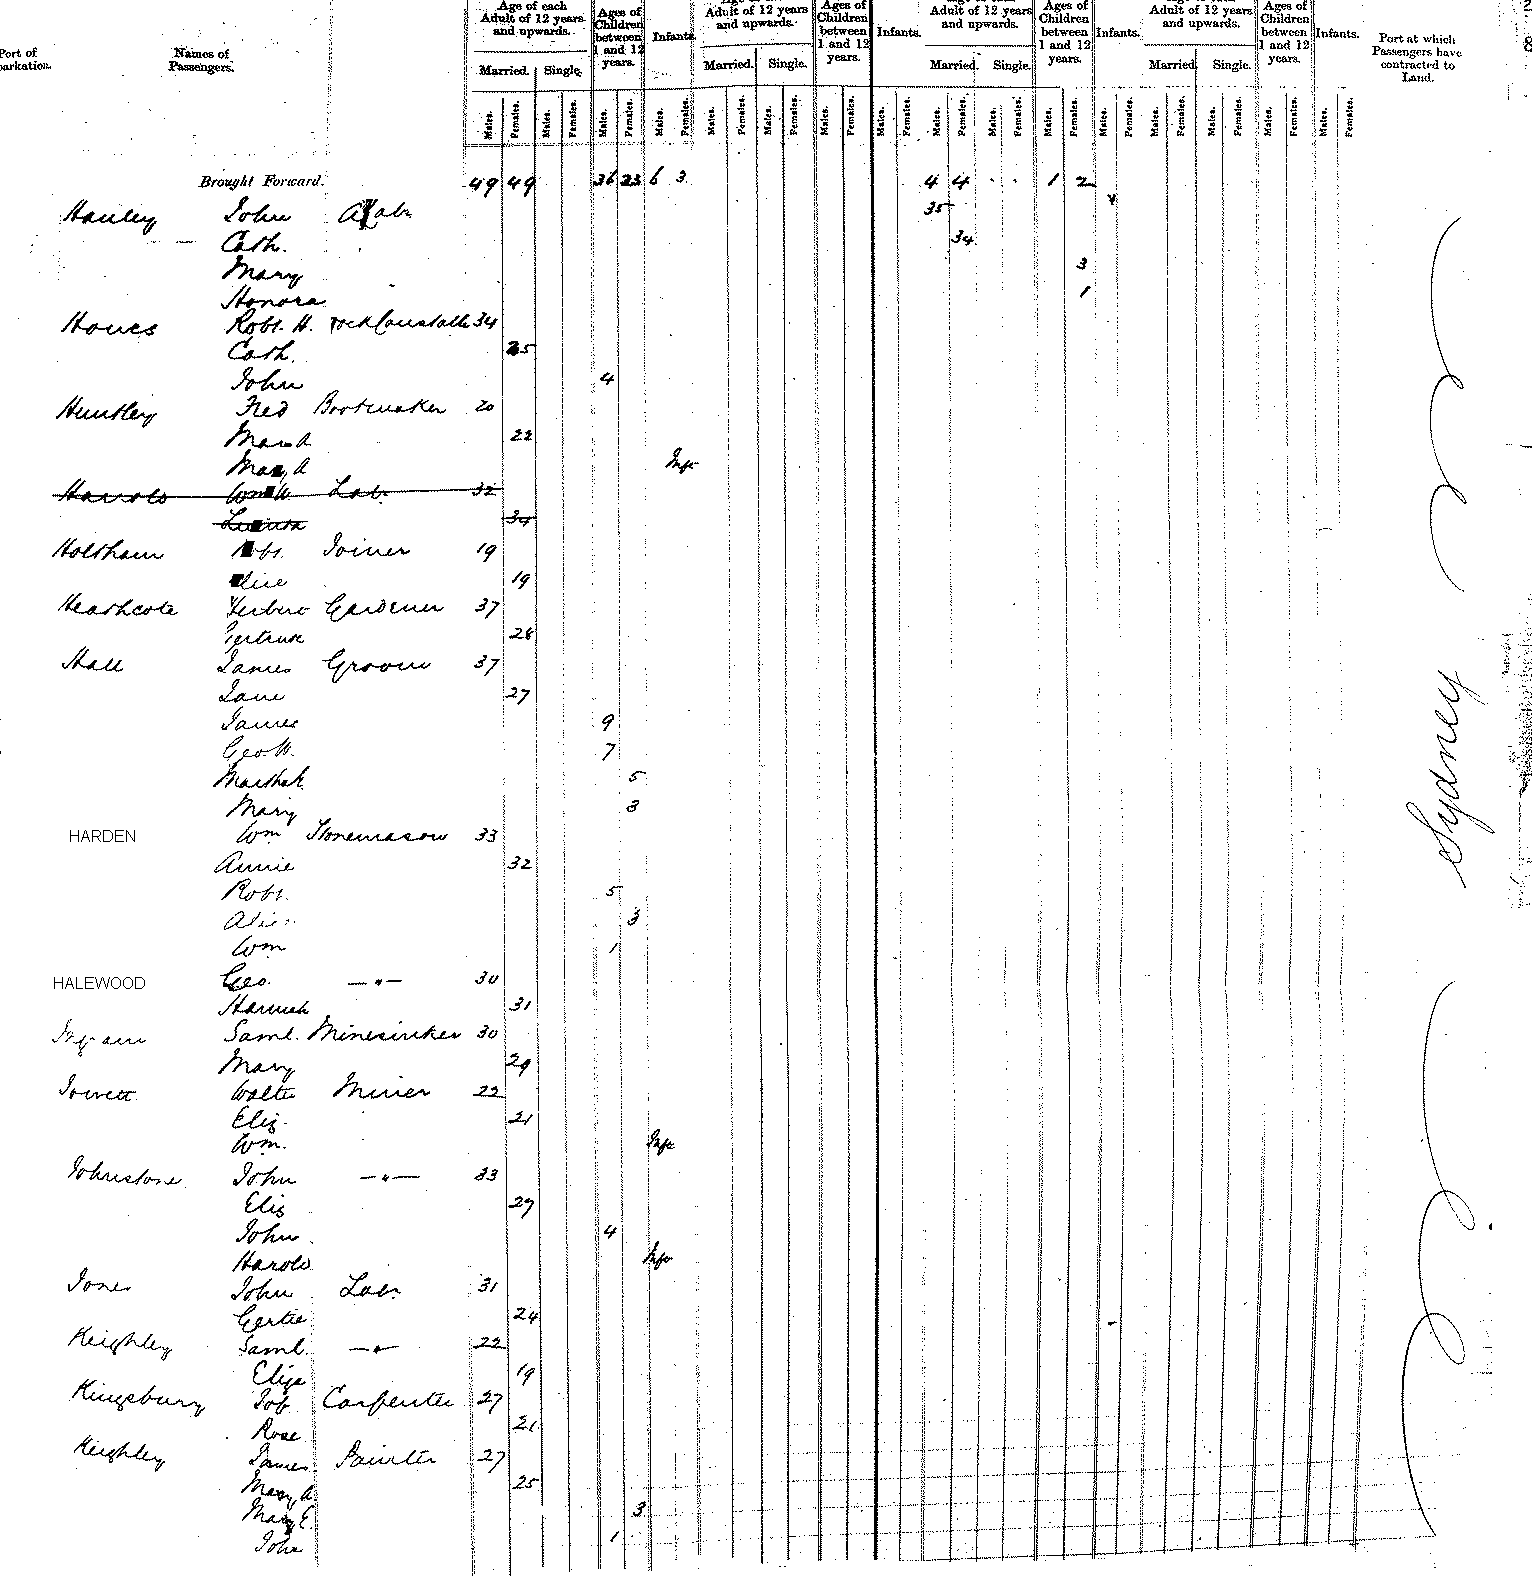 Age of each Adult of 12 years and upwards. Ages of Children between 1 and 12 years. Infants. Adult of 12 years and upwards. Ages of Children between 1 and 12 years. Infants. Adult of 12 years and upwards. Ages of Children between 1 and 12 years. Infants. Adult of 12 years and upwards. Ages of Children between 1 and 12 years. Infants.
Port of Names of Passengers. Port at which Passengers have contracted to Land.
Married. Single. Married. Single. Married. Single. Married. Single.
Males. Females. Males. Females. Males. Females. Males. Females. Males. Females. Males. Females. Males. Females. Males. Females. Males. Females. Males. Females. Males. Females. Males. Females. Males. Females. Males. Females. Males. Females. Males. Females.
Brought Forward. 49 49 36 23 6 3 4 4 1 2
Hanley John 35
Cath. 34
Mary 3
Honora 1
Robt. H. 34
Cath. 25
John 4
Huntley Fred Bootmaker 20
22
Mary A Inft
Harold Wm W Lab. 32
34
Holtham Robt. Joiner 19
Alice 19
Heathcote Herbert Gardener 37
Gertrude 28
Hall James Groom 37
Jane 27
James 9
Geo W. 7
5
Mary 3
HARDEN Wm Stonemason 33
Annie 32
Robt. 5
3
Wm 1
HALEWOOD Geo. —"— 30
Hannah 31
Ingram Saml. Minesinker 30
Mary 29
Jowett Walter Miner 22
Eliz. 21
Wm. Inft
Johnstone John —"— 33
Eliz 27
John 4
Harold Inft
Jones John Lab. 31
Gertie 24
Keighley Saml. —"— 22
Eliza 19
Kingsbury Job Carpenter 27
Rose 21
Keighley James Painter 27
Mary A. 25
Mary E. 3
John 1
Sydney